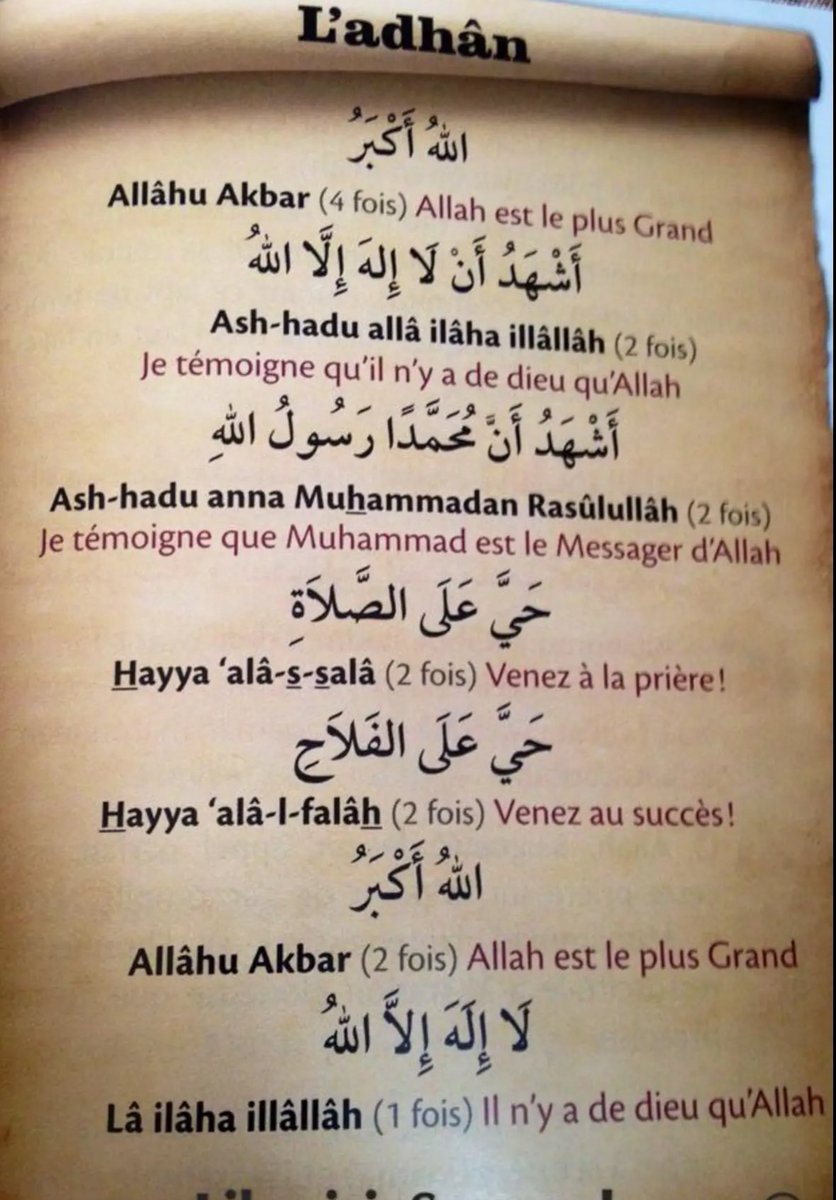 L'adhân
اللهُ أَكْبَرُ
Allâhu Akbar (4 fois) Allah est le plus Grand
أَشْهَدُ أَنْ لَا إِلهَ إِلَّا اللهُ
Ash-hadu allâ ilâha illâllâh (2 fois)
Je témoigne qu'il n'y a de dieu qu'Allah
أَشْهَدُ أَنَّ مُحَمَّدًا رَسُولُ اللهِ
Ash-hadu anna Muhammadan Rasûlullâh (2 fois)
Je témoigne que Muhammad est le Messager d'Allah
حَيَّ عَلَى الصَّلاَةِ
Hayya ‘alâ-s-salâ (2 fois) Venez à la prière!
حَيَّ عَلَى الفَلاَحِ
Hayya ‘alâ-l-falâh (2 fois) Venez au succès!
اللهُ أَكْبَرُ
Allâhu Akbar (2 fois) Allah est le plus Grand
لَا إِلَهَ إِلاَّ اللهُ
Lâ ilâha illâllâh (1 fois) Il n'y a de dieu qu'Allah